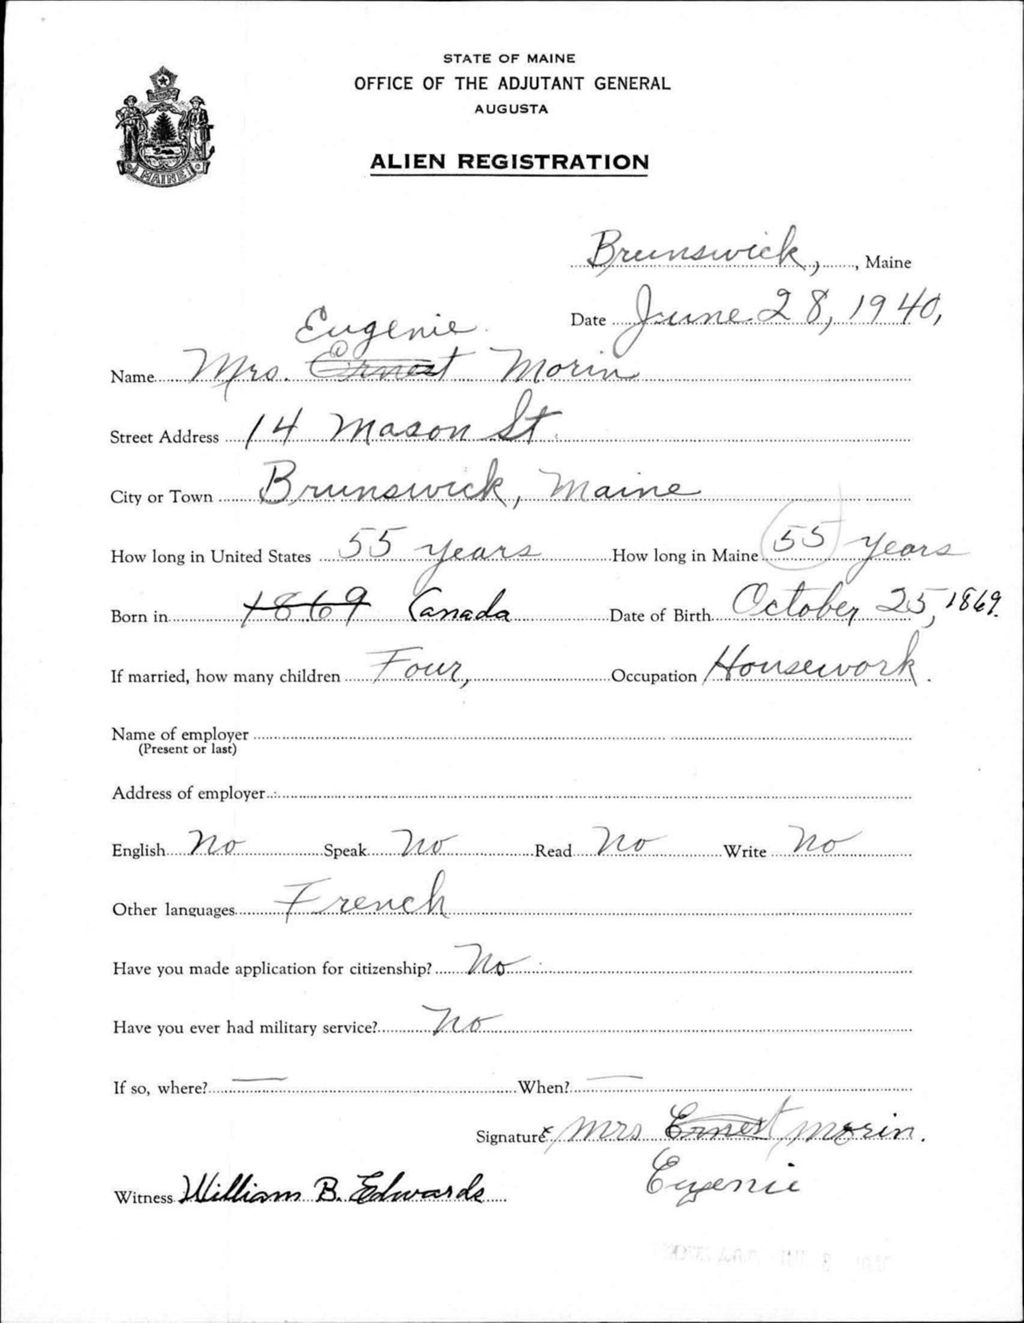 STATE OF MAINE
OFFICE OF THE ADJUTANT GENERAL
AUGUSTA
MAINE
ALIEN REGISTRATION
Brunswick, , Maine
Date June 28, 1940,
Eugenie
Name Mrs. Ernest Morin
Street Address 14 Mason St.
City or Town Brunswick, Maine
How long in United States 55 years How long in Maine 55 years
Born in 1869 Canada Date of Birth October 25, 1869.
If married, how many children Four, Occupation Housework.
Name of employer
(Present or last)
Address of employer
English No Speak No Read No Write No
Other languages French
Have you made application for citizenship? No
Have you ever had military service? No
If so, where? — When? —
Signature x Mrs Ernest Morin.
Witness William B. Edwards Eugenie